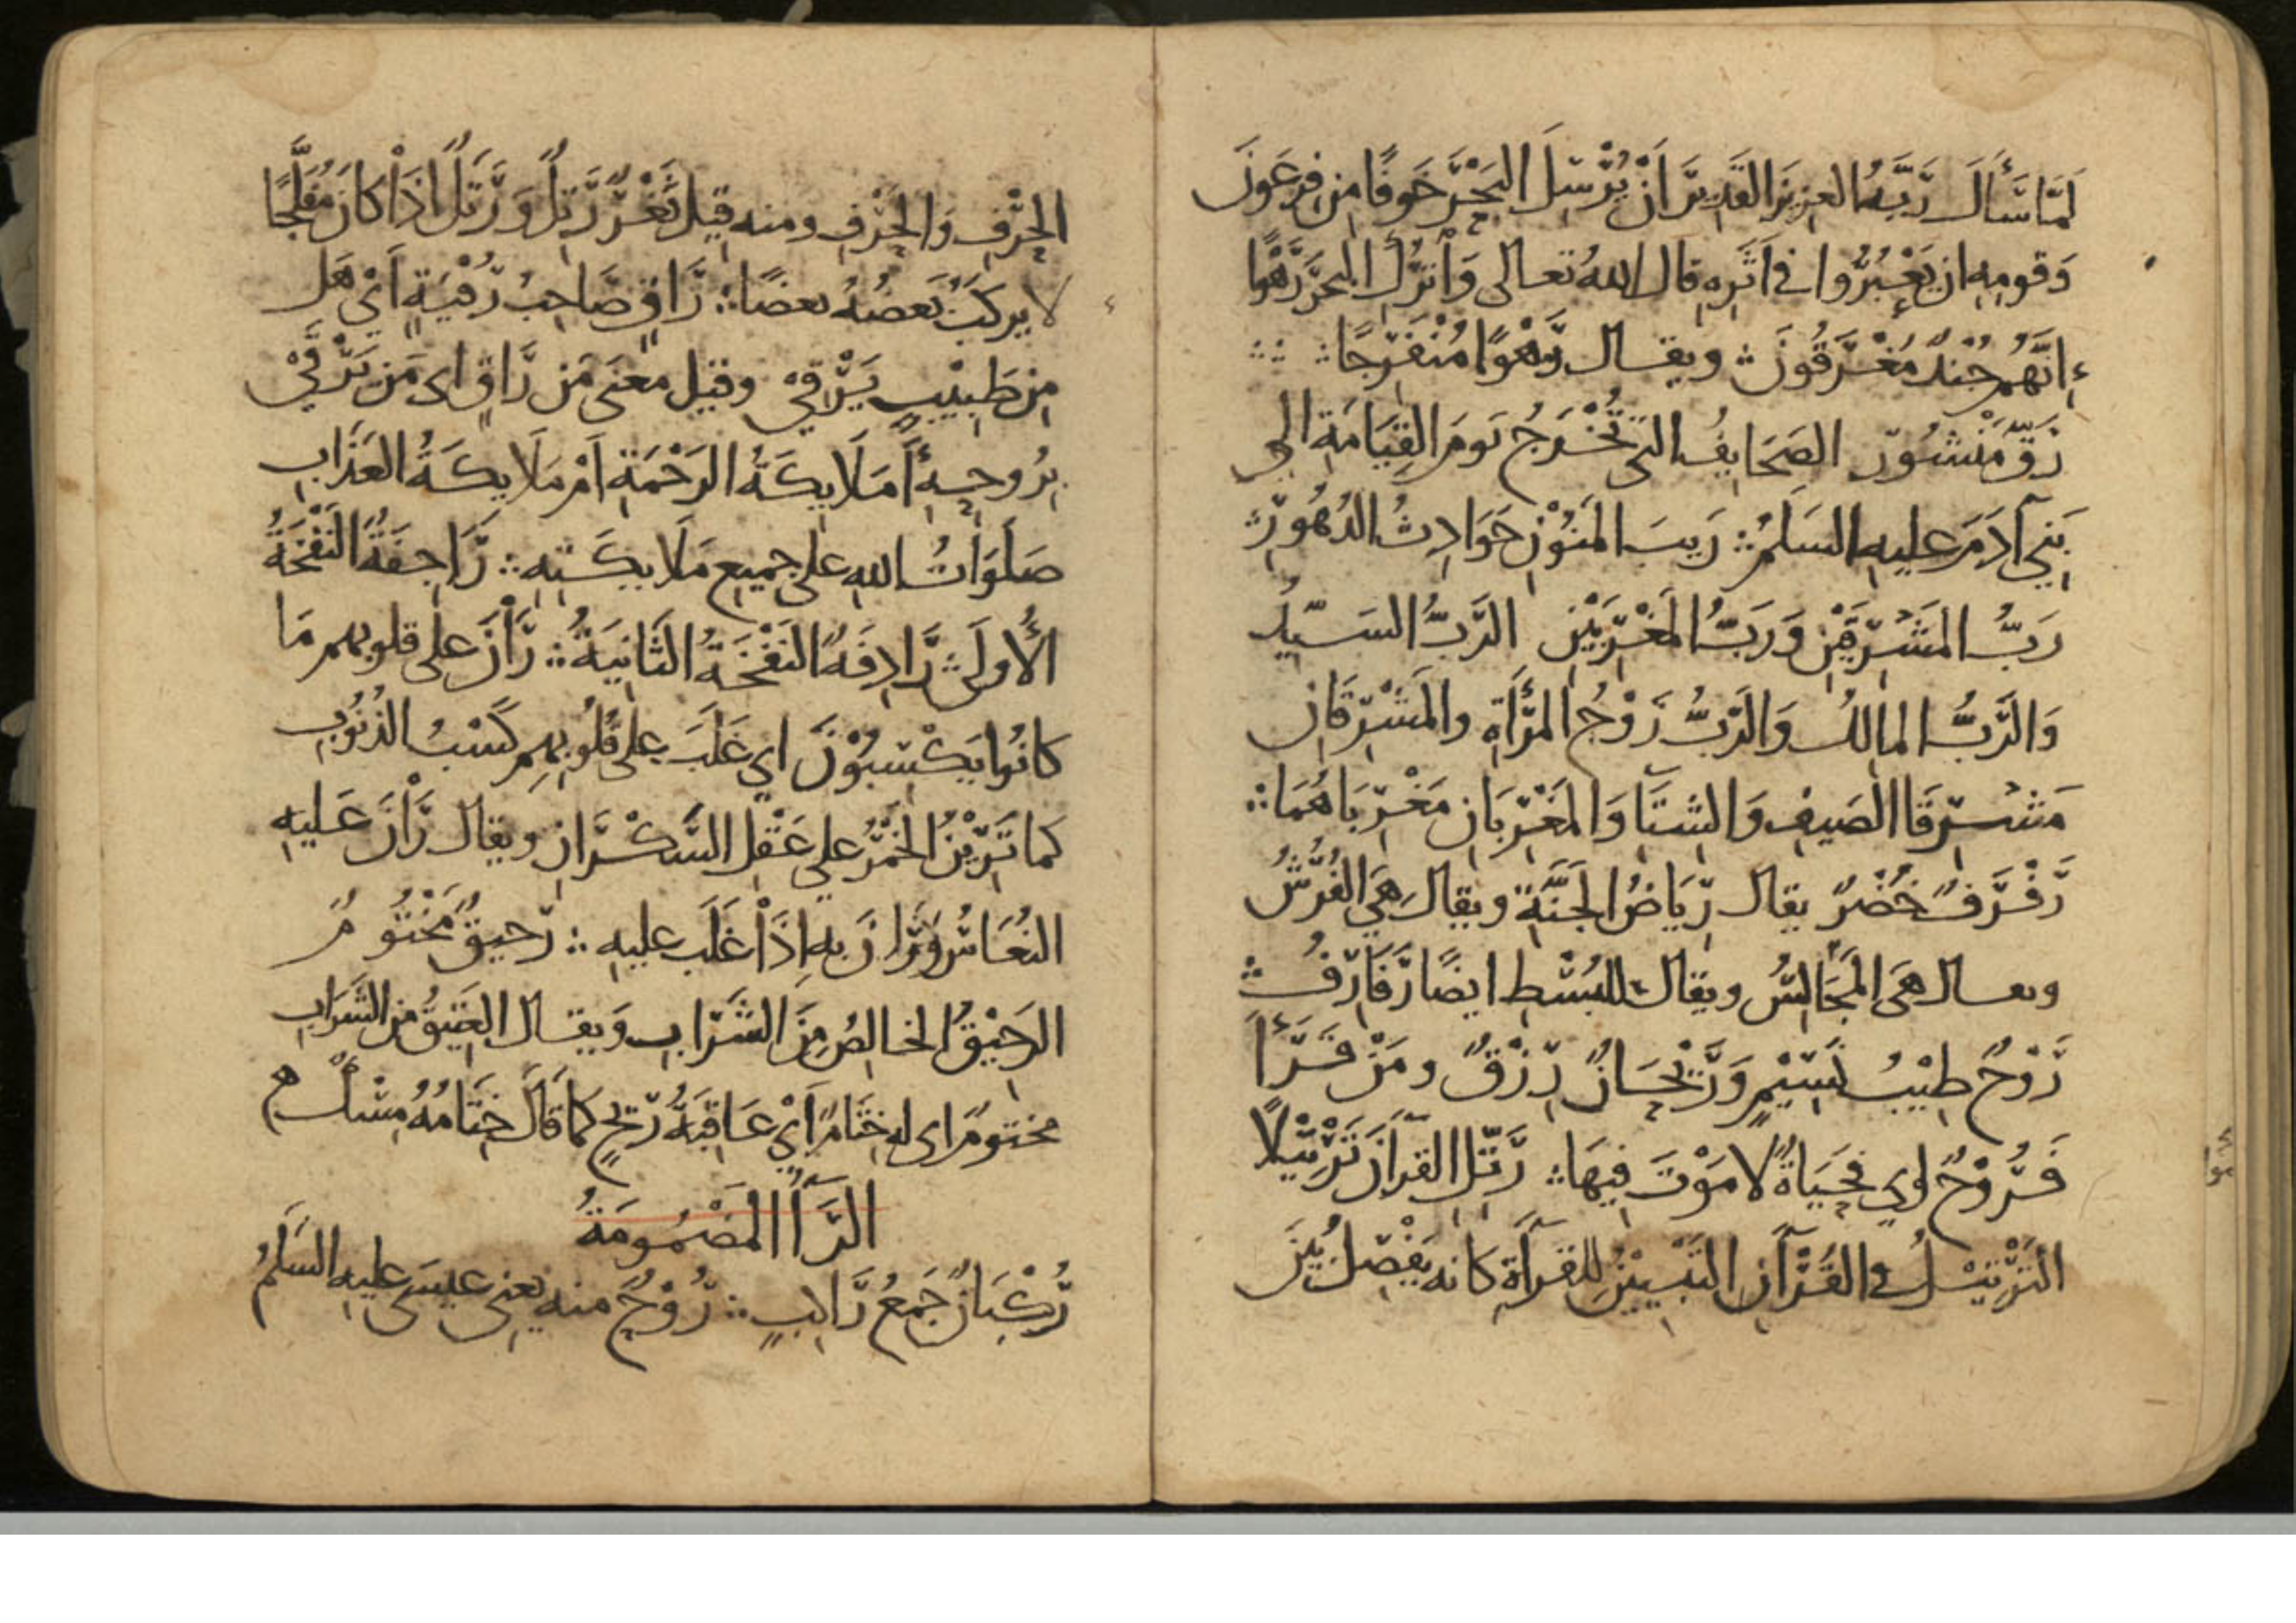 لَمَّا سَأَلَ رَبَّهُ العزيزَ القَدِيرَ أَنْ يُرْسِلَ البَحْرَ خَوفًا مِن فِرعَونَ
وَقومِهِ ان يَعْبُرُوا في اَثَرِهِ قال اللهُ تعالى وَاْتْرُكِ البحرَ رَهْوًا
إِنَّهُم جُنْدٌ مُغْرَقُونَ ويقال رَهْوًا مُنْفَرِجًا
رَقٍّ مَنْشُورٍ الصَحَايِفُ التى تُخْرَجُ يَومَ القِيَامَةِ الى
بَنِي آدَمَ عليه السَلمُ رَيبَ المَنُوْنِ حَوَادِثُ الدُهُورِ
رَبُّ المَشْرِقَيْنِ وَرَبُّ المَغْرِبَيْنِ الرَبُّ السَيِّدُ
وَالرَّبُّ المالِكُ وَالرَبُّ زَوْجُ المَرْأَةِ والمَشْرِقَانِ
مَشْرِقَا الصَيفِ وَالشِتَآءِ وَالمَغْرِبَانِ مَغْرِبَاهُمَا
رَفْرَفٌ خُضْرٌ يقال رِيَاضُ الجَنَّةِ ويقال هِيَ الفُرُشُ
ويقال هِيَ المَجَالِسُ ويقال للبُسْطِ ايضًا رَفَارِفُ
رَوْحٌ طِيْبُ نَسِيْمٍ وَرَيْحَانٌ رِزْقٌ ومَنْ قَرَأَ
فَرُوْحٌ اي فَحَيَاةٌ لا مَوْتَ فِيهَا رَتِّلِ القرآنَ تَرْتِيْلًا
التَرْتِيْلُ في القُرْآنِ التَبْيِيْنُ للقرآءَةِ كانه يَفْصِلُ بَيْنَ
الحَرْفِ وَالحَرْفِ ومنه قِيلَ ثَغْرٌ رَتِلٌ وَرَتَلٌ اِذَا كَانَ مُفَلَّجًا
لا يركَبُ بَعضُهُ بعضًا رَاقٍ صَاحِبُ رُقْيَةٍ اَيْ هَل
مِن طَبِيْبٍ يَرْقِيْ وقيل معنى مَن رَاقٍ اى مَن يَرْقَىْ
بِرُوحِهِ أَمَلَايِكَةُ الرَحْمَةِ اَمْ مَلَايِكَةُ العَذَابِ
صَلَوَاتُ اللهِ على جميع مَلَايِكَتِهِ رَاجِفَةٌ النَفْخَةُ
الأُولَى رَادِفَةٌ النَفْخَةُ الثَانِيَةُ رَاْنَ على قلوبهم مَا
كانُوا يَكْسِبُوْنَ اي غَلَبَ على قُلُوبِهِم كَسْبُ الذُنُوبِ
كما تَرِيْنُ الخَمْرُ على عَقْلِ السَّكْرَانِ ويقال رَاْنَ عَليه
النُعَاسُ وَرَانَ بِهِ اِذَاْ غَلَبَ عليه رَحيقٌ مَخْتُومٌ
الرَحِيْقُ الخالِصُ مِنَ الشَرَابِ وَيقال العَتِيقُ مِن الشَرَابِ
مختومٌ اى له خِتَامٌ اَيْ عَاقِبَةُ رِيحٍ كما قَالَ خِتَامُهُ مِسْكٌ
الرَآءُ المَضْمُومَةُ
رُكْبَانٌ جَمعُ رَاكِبٍ رُوْحٌ منه يعنى عيسى عليه السَلَمُ